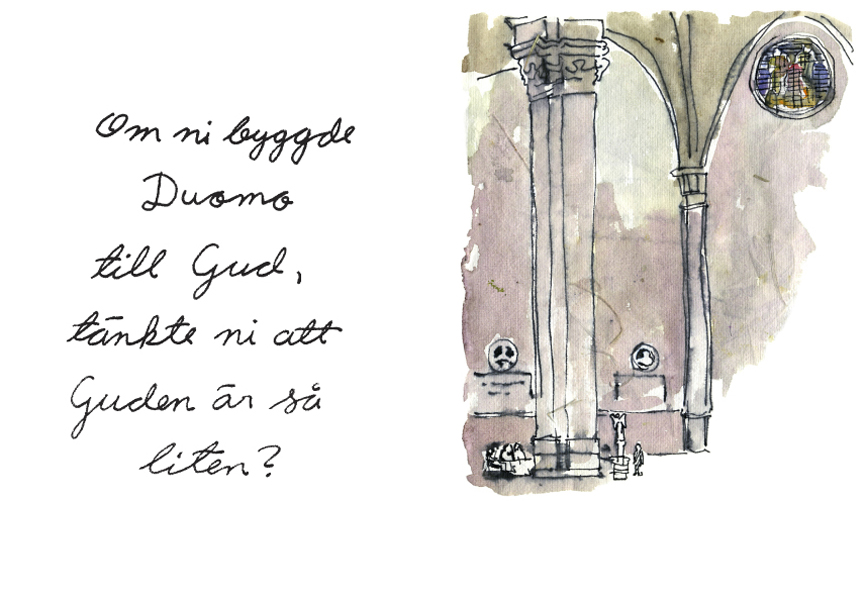 Om ni byggde
Duomo
till Gud,
tänkte ni att
Guden är så
liten?